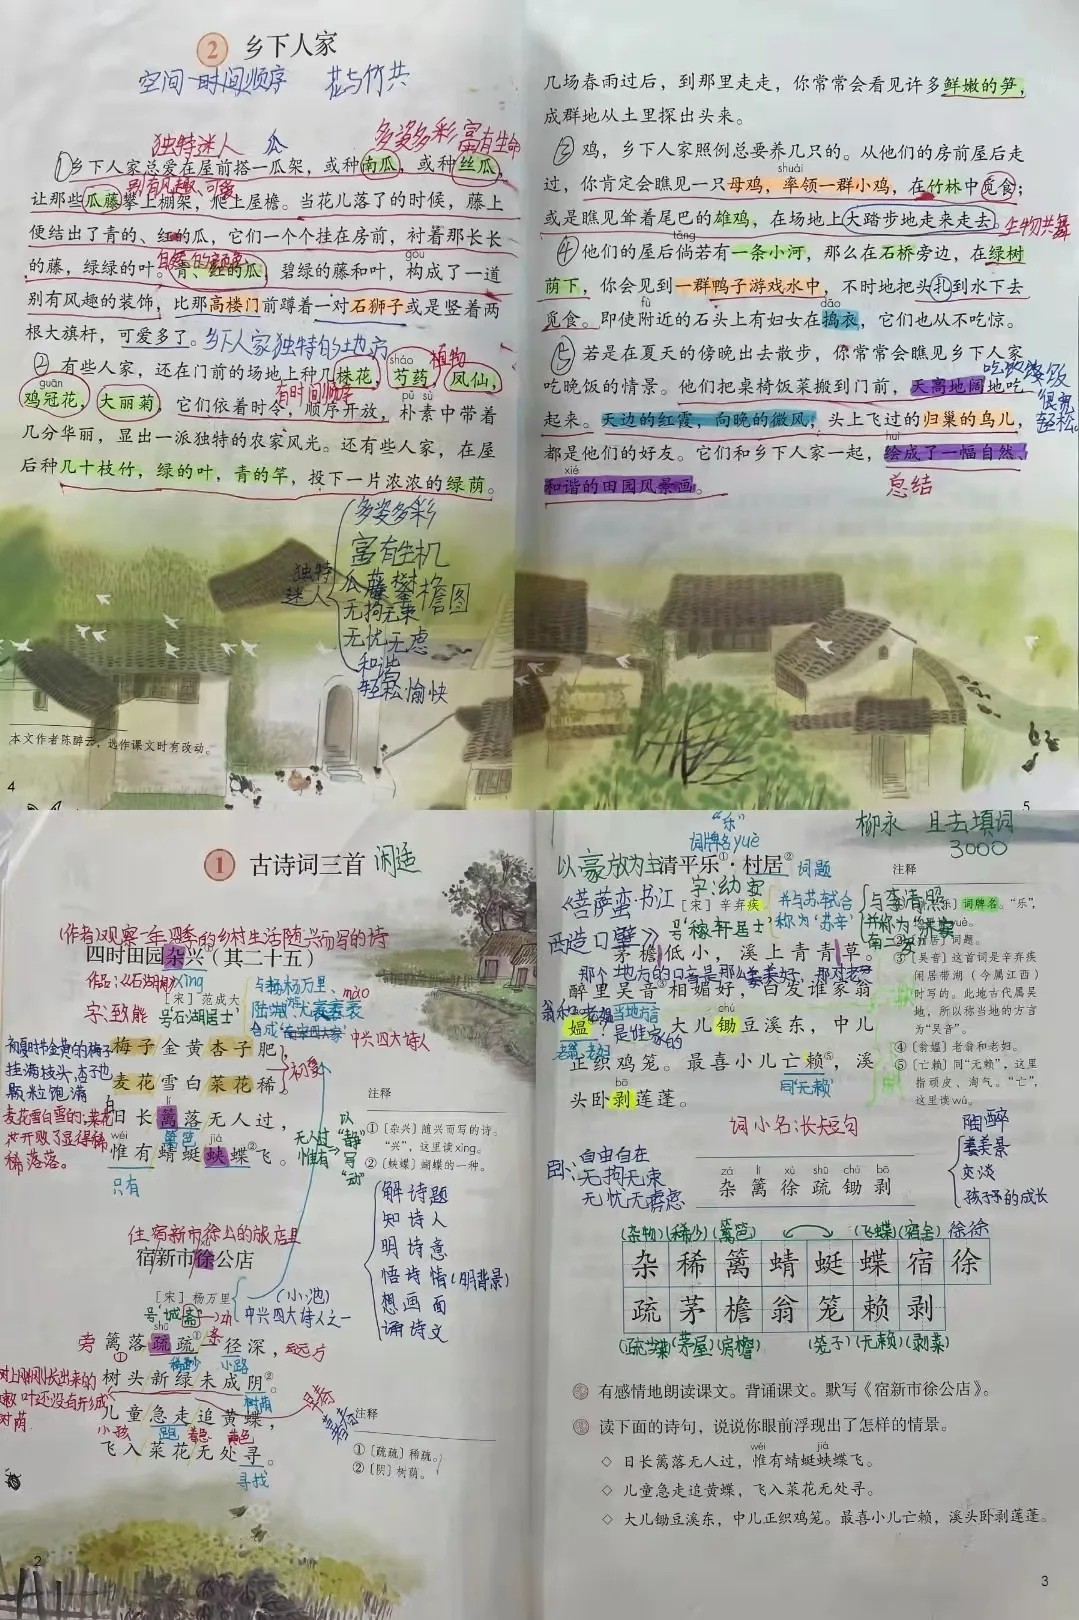 2 乡下人家
空间—时间顺序 花与竹共
独特迷人 瓜 多姿多彩 富有生命
①乡下人家总爱在屋前搭一瓜架，或种南瓜，或种丝瓜，
别有风趣、可爱
让那些瓜藤攀上棚架，爬上屋檐。当花儿落了的时候，藤上
便结出了青的、红的瓜，它们一个个挂在房前，衬着那长长
的藤，绿绿的叶。青、红的瓜，碧绿的藤和叶，构成了一道
gòu
别有风趣的装饰，比那高楼门前蹲着一对石狮子或是竖着两
根大旗杆，可爱多了。
乡下人家独特的地方
②有些人家，还在门前的场地上种几株花，芍药，凤仙，
sháo
植物
guān
鸡冠花，大丽菊，它们依着时令，顺序开放，朴素中带着
有时间顺序
pǔ sù
几分华丽，显出一派独特的农家风光。还有些人家，在屋
后种几十枝竹，绿的叶，青的竿，投下一片浓浓的绿荫。
独特迷人
多姿多彩
富有生机
瓜藤攀檐图
无拘无束
无忧无虑
和谐
轻松愉快
本文作者陈醉云，选作课文时有改动。
4
几场春雨过后，到那里走走，你常常会看见许多鲜嫩的笋，
成群地从土里探出头来。
③鸡，乡下人家照例总要养几只的。从他们的房前屋后走
shuài
过，你肯定会瞧见一只母鸡，率领一群小鸡，在竹林中觅食；
或是瞧见耸着尾巴的雄鸡，在场地上大踏步地走来走去。
生物共舞
tǎng
④他们的屋后倘若有一条小河，那么在石桥旁边，在绿树
荫下，你会见到一群鸭子游戏水中，不时地把头扎到水下去
fù dǎo
觅食。即使附近的石头上有妇女在捣衣，它们也从不吃惊。
⑤若是在夏天的傍晚出去散步，你常常会瞧见乡下人家
吃晚饭的情景。他们把桌椅饭菜搬到门前，天高地阔地吃
很享
轻松
起来。天边的红霞，向晚的微风，头上飞过的归巢的鸟儿，
huì
都是他们的好友。它们和乡下人家一起，绘成了一幅自然、
xié
和谐的田园风景画。
总结
5
1 古诗词三首 闲适
(作者)观察一年四季的乡村生活随兴而写的诗
四时田园杂兴（其二十五）
xìng
［宋］范成大
字:致能
号'石湖居士'
与杨万里、
陆游、尤袤
mào
合成"南宋四大家"
中兴四大诗人
梅子金黄杏子肥，
麦花雪白菜花稀。
初夏
日长篱落无人过，
篱笆
wéi jiá
惟有蜻蜓蛱蝶②飞。
只有
初夏时节金黄的梅子
挂满枝头，杏子也
颗粒饱满
麦花雪白雪白的,菜花
稀落落。
无人过"静"
惟有
以
写
"动"
注释
①〔杂兴〕随兴而写的诗。
"兴"，这里读xìng。
②〔蛱蝶〕蝴蝶的一种。
解诗题
知诗人
明诗意
悟诗情(明背景)
想画面
诵诗文
住宿新市徐公的旅店里
xú
宿新市徐公店
［宋］杨万里
(小池)
号"诚斋"
中兴四大诗人之一
shū
篱落疏疏①一径深，
旁
稀疏 小路
远方
树头新绿未成阴②。
树荫
树上刚刚长出来的
嫩叶还没有形成
树荫
儿童急走追黄蝶，
小孩 跑 着急 黄色
飞入菜花无处寻。
寻找
注释
①〔疏疏〕稀疏。
②〔阴〕树荫。
2
柳永 且去填词
3000
"乐"
词牌名yuè
以豪放为主
清平乐①·村居②
词题
［宋］辛弃疾
字:幼安
号'稼轩居士'
《菩萨蛮·书江
西造口壁》
并与苏轼合
称为'苏辛'
与李清照
茅檐低小，溪上青青草。
醉里吴音③相媚好，白发谁家翁
当地方言
是谁家的
chú
媪④？大儿锄豆溪东，中儿
正织鸡笼。最喜小儿亡赖⑤，溪
同"无赖"
bō
头卧剥莲蓬。
注释
词牌名。"乐"，
词题。
③〔吴音〕这首词是辛弃疾
闲居带湖（今属江西）
时写的。此地古代属吴
地，所以称当地的方言
为"吴音"。
④〔翁媪〕老翁和老妇。
⑤〔亡赖〕同"无赖"，这里
指顽皮、淘气。"亡"，
这里读wú。
词小名:长短句
自由自在
无拘无束
无忧无虑
陶醉
美景
交谈
孩子的成长
zá lí xú shū chú bō
杂 篱 徐 疏 锄 剥
(杂物)(稀少)(篱笆) (飞蝶)(宿舍)徐徐
杂 稀 篱 蜻 蜓 蝶 宿 徐
疏 茅 檐 翁 笼 赖 剥
(茅屋)(房檐) (笼子)(无赖)(剥菜)
有感情地朗读课文。背诵课文。默写《宿新市徐公店》。
读下面的诗句，说说你眼前浮现出了怎样的情景。
wéi jiá
◇ 日长篱落无人过，惟有蜻蜓蛱蝶飞。
◇ 儿童急走追黄蝶，飞入菜花无处寻。
◇ 大儿锄豆溪东，中儿正织鸡笼。最喜小儿亡赖，溪头卧剥莲蓬。
3